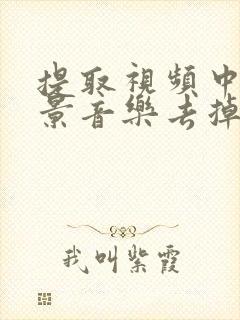 提取視頻中
景音樂去掉
我叫紫霞